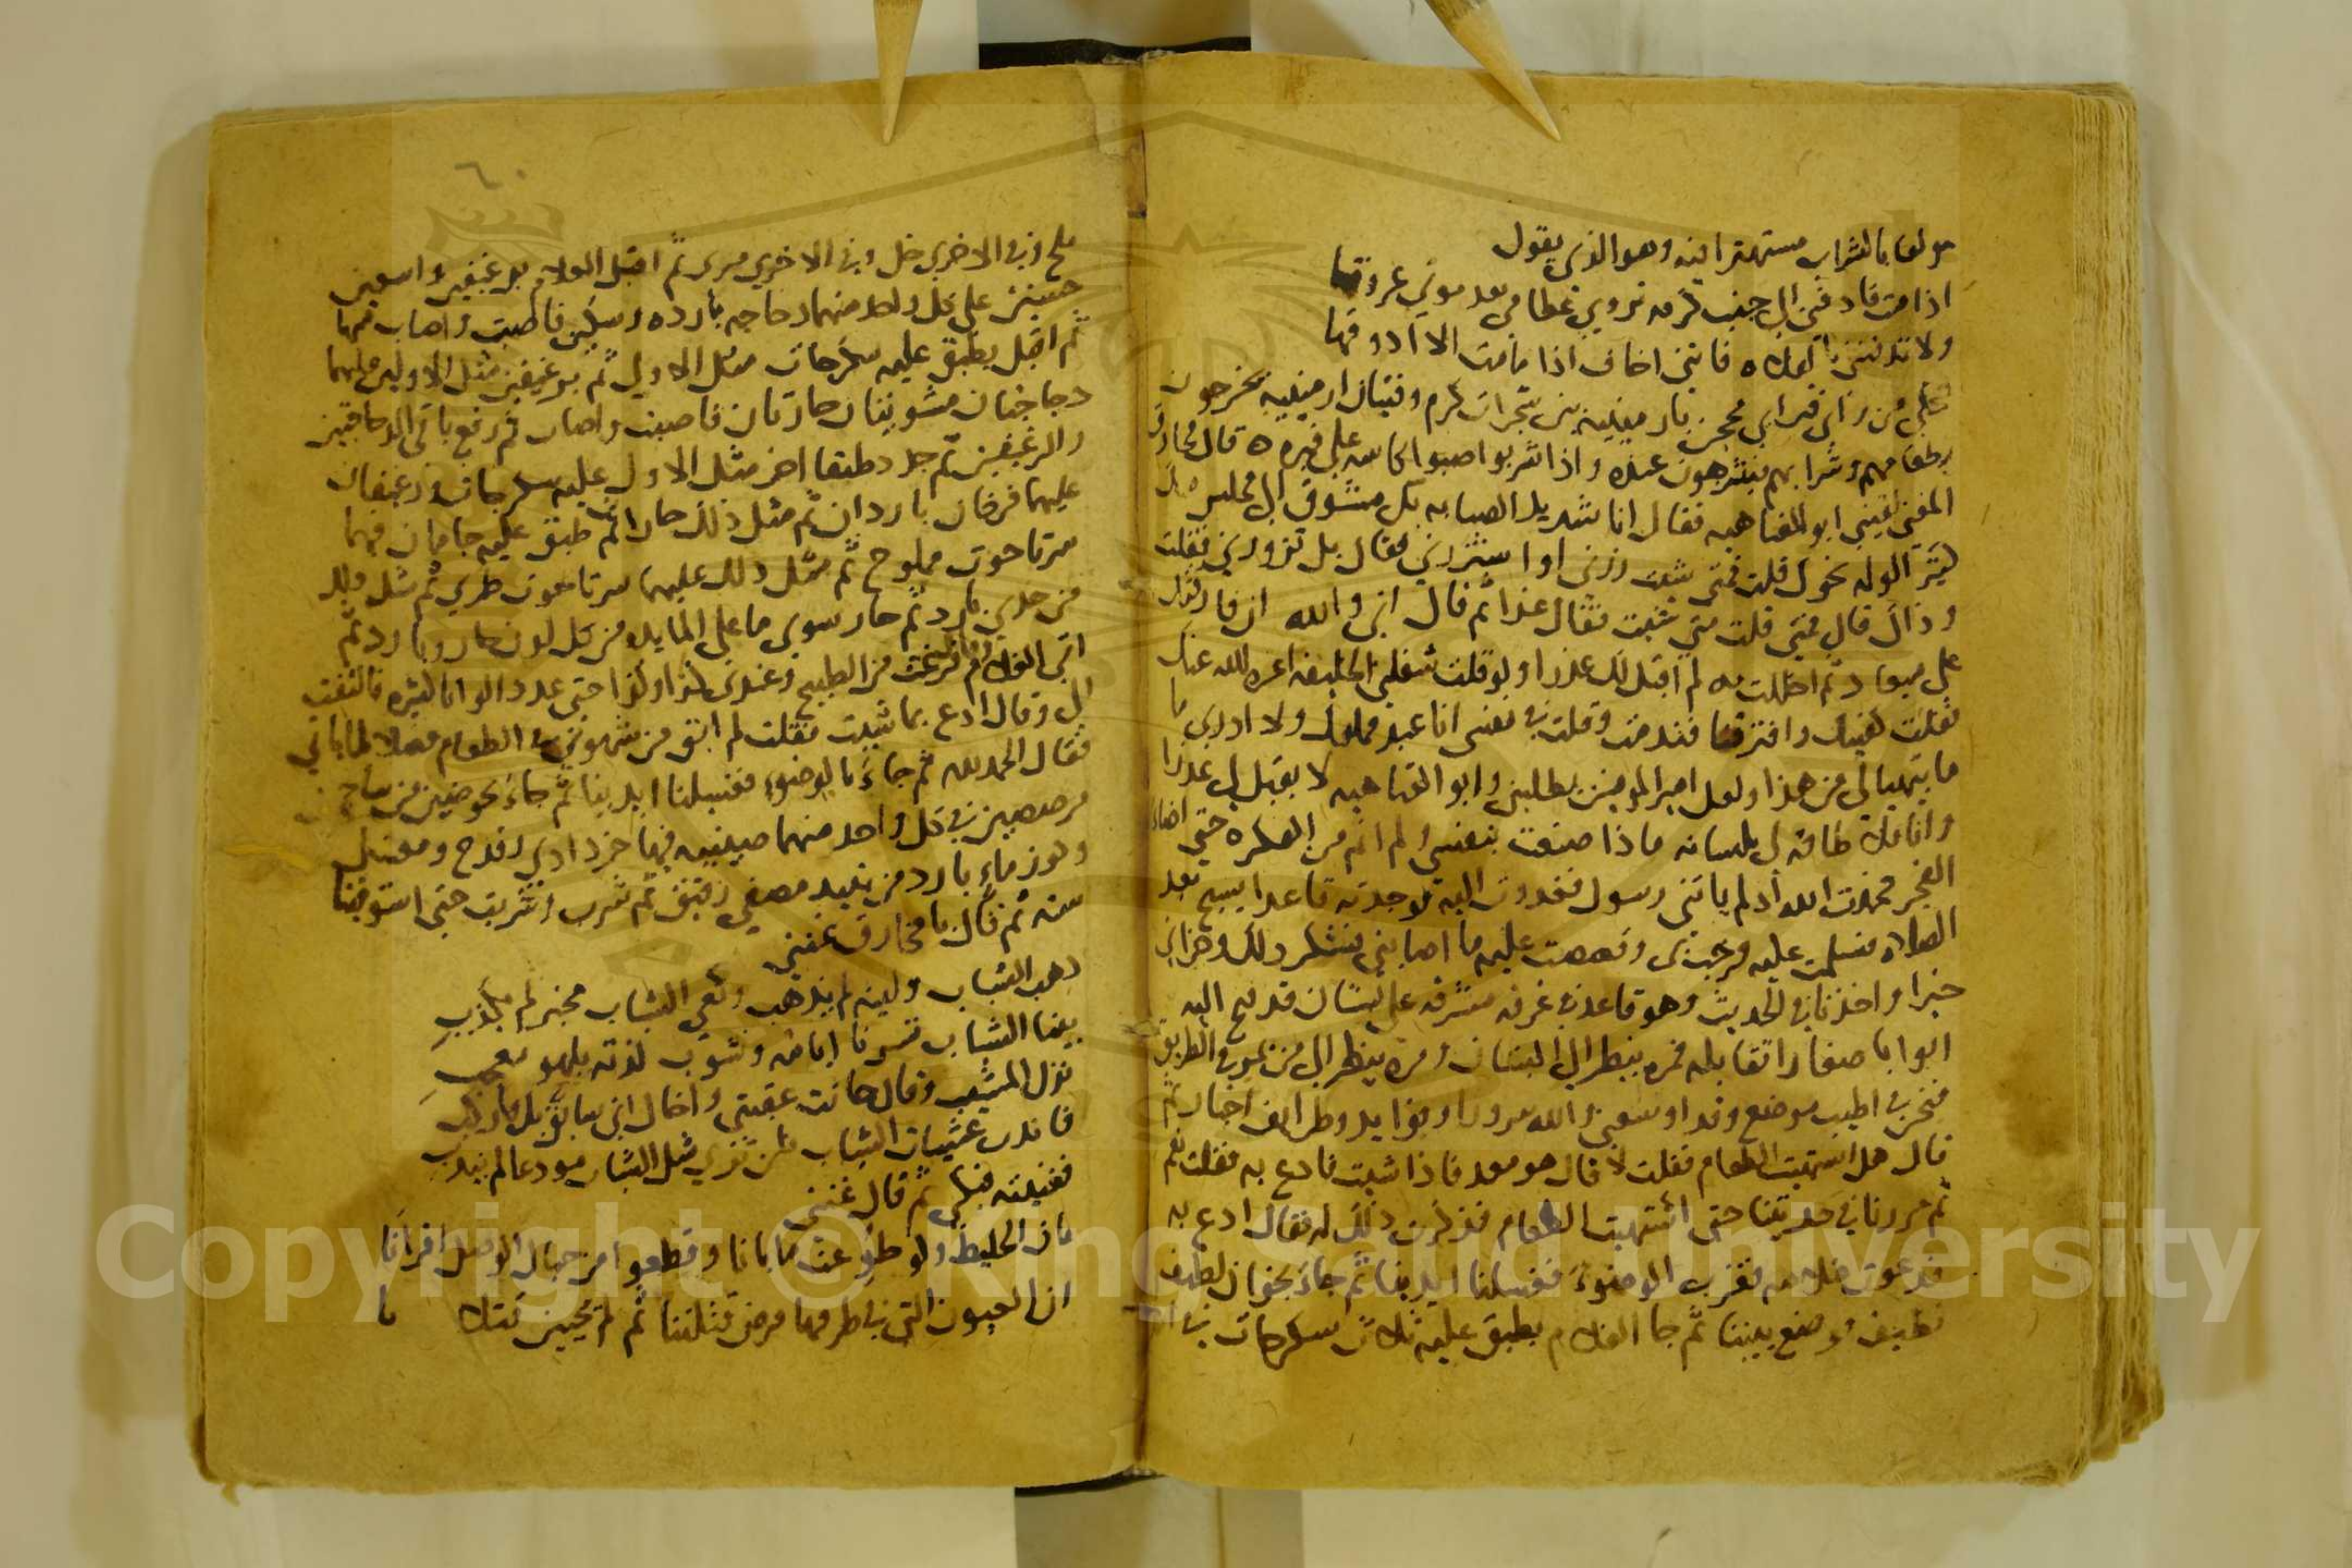 مولعا بالشراب مستهترا فيه وهو الذي يقول
اذا مت فادفني الى جنب كرمه تروي عظامي بعد موتي عروقها
ولا تدفنني بالفلاه فانني اخاف اذا ما مت الا اذوقها
من راى قبر ابي محجن بارمينيه بين شجرات كرم وفتيان ارمينيه يخرجون
بطعامهم وشرابهم يتنزهون عنده واذا شربوا صبوا كاسه على قبره ه قال مخارق
المغني لقيني ابو العتاهيه فقال انا شديد الصبابه بك متشوق الى مجلس
كثير الوله نحوك قلت فمتى شيت زرني او استزرني فقال بل تزورني فقلت
وذاك قال فمتى قلت متى شيت فقال غدا ثم قال اني والله ان فارقتك
على ميعاد ثم اخللت به لم اقبل لك عذرا ولو قلت شغلني الخليفه اعزه الله عنك
فقلت وافترقنا فندمت وقلت في نفسي انا عبد مملوك ولا ادري ما
ما يتهيا لي من هذا ولعل امير المومنين يطلبني وابو العتاهيه لا يقبل لي عذرا
وانا فلا طاقه لي بلسانه ماذا صنعت بنفسي ولم انم من الفكره حتى اضاء
الفجر فحمدت الله اذ لم ياتني رسول فغدوت اليه فوجدته قاعدا يسبح بعد
الصلاه فسلمت عليه فرحب بي وقصصت عليه ما اصابني فشكر ذلك وجزاني
خيرا واخذنا في الحديث وهو قاعد في غرفه مشرفه على بستان قد فتح اليه
ابوابا صغارا تقابله فمره ينظر الى البستان ومره ينظر الى من يمر في الطريق
فنحن في اطيب موضع وقد اوسعني والله سرورا وفوايد وطرايف اخبار ثم
قال هل اشتهيت الطعام فقلت لا قال هو معد فاذا شيت فادع به فقلت نعم
ثم مررنا في حديثنا حتى اشتهيت الطعام فذكرت ذلك له فقال ادع به
فدعوت غلامه فقرب الوضوء فغسلنا ايدينا ثم جاء بخوان لطيف
نظيف فوضع بيننا ثم جا الغلام بطبق عليه ثلاث سكرجات في
٦٠
ملح وفي الاخرى خل وفي الاخرى مرى ثم اقبل الغلام برغيفين واسعين
حسنين على كل واحد منهما دجاجه بارده وسكين فاصبت واصاب منهما
ثم اقبل بطبق عليه سكرجات مثل الاول ثم برغيفين مثل الاولين عليهما
دجاجتان مشويتان حارتان فاصبت واصاب ثم رفع باقي الدجاجتين
والرغيفين ثم جدد طبقا اخر مثل الاول عليه سكرجات ورغيفان
عليهما فرخان باردان ثم مثل ذلك حاران ثم طبق عليه جامان فيهما
سرتا حوت مملوح ثم مثل ذلك عليهما سرتا حوت طري ثم مثل ذلك
من جدي بارد ثم حار سوى ما على المايده من كل لون حار وبارد ثم
اتى الغلام وقال فرغت من الطبيخ وعندي كذا وكذا حتى عدد الوانا كثيره فالتفت
الي وقال ادع بما شيت فقلت لم ابق من شهوتي في الطعام فضلا لما ياتي
فقال الحمدلله ثم جاءنا بالوضوء فغسلنا ايدينا ثم جاء بحوضين من ساج
مرصصين في كل واحد منهما صينيه فيها خردادي وقدح ومغسل
وكوز ماء بارد من نبيد مصفى رقيق ثم شرب وشربت حتى استوفينا
سته ثم قال يا مخارق غنني
ذهب الشباب وليته لم يذهب ونعى الشباب مخبر لم يكذب
بينا الشباب تسرنا ايامه وتشوب لذته بلهو معجب
نزل المشيب وقال حانت عقبتي واخال اني سابق بك فاركب
فاندب عشيات الشباب فلن ترى مثل الشباب مودعا لم يندب
فغنيته فبكى ثم قال غنني
بان الخليط ولو طوعت ما بانا وقطعوا من حبال الوصل اقرانا
ان العيون التي في طرفها مرض قتلننا ثم لم يحيين قتلانا
Copyright © King Saud University